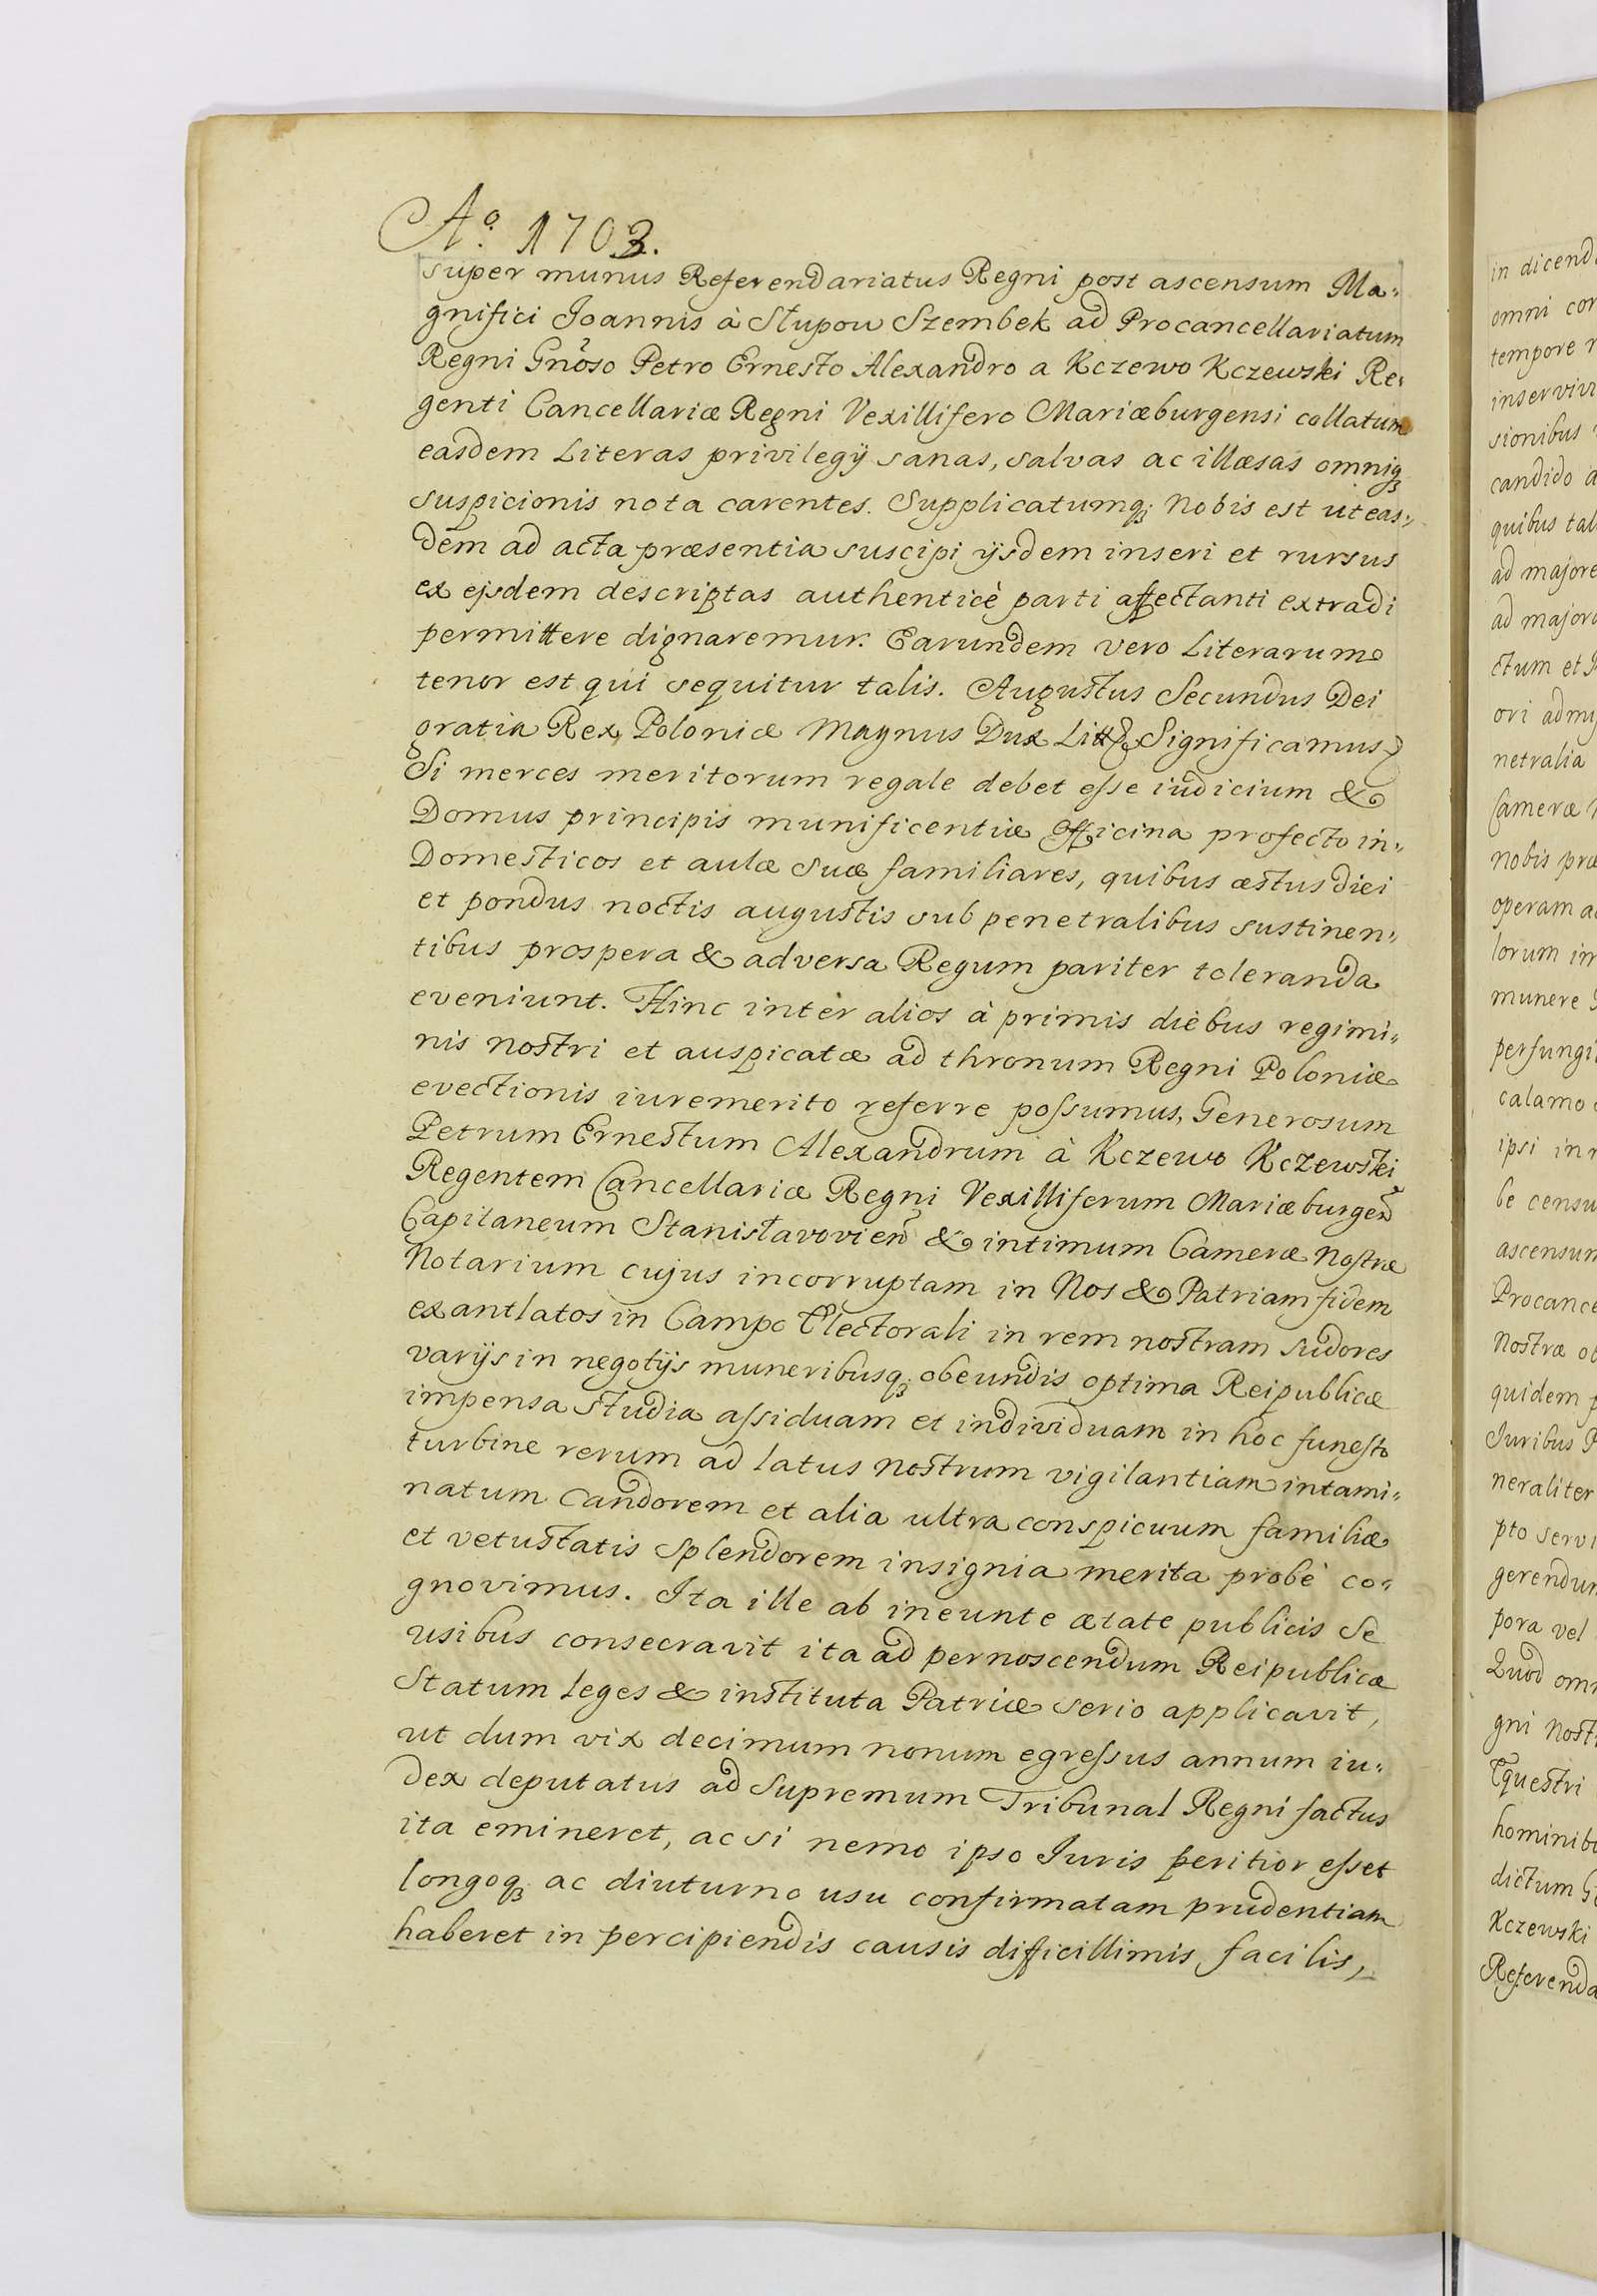 Aº 1703.
super munus Referendariatus Regni post ascensum Ma-
gnifici Joannis à Słupow Szembek ad Procancellariatum
Regni Gnoso Petro Ernesto Alexandro a Kczewo Kczewski Re-
genti Cancellariæ Regni Vexillifero Mariæburgensi collatum
easdem Literas privilegij sanas, salvas ac illæsas omniq;
suspicionis nota carentes. Supplicatumq; Nobis est ut eas-
dem ad acta præsentia suscipi ijsdem inseri et rursus
ex ejsdem descriptas authenticè parti affectanti extradi
permittere dignaremur. Earundem vero Literarum
tenor est qui sequitur talis. Augustus Secundus Dei
gratia Rex Poloniæ Magnus Dux Litt Significamus
Si merces meritorum regale debet esse iudicium &
Domus principis munificentiæ officina profecto in-
Domesticos et aulæ suæ familiares, quibus æstus diei
et pondus noctis augustis sub penetralibus sustinen-
tibus prospera & adversa Regum pariter toleranda
eveniunt. Hinc inter alios à primis diebus regimi-
nis nostri et auspicatæ ad thronum Regni Poloniæ
evectionis iuremerito referre possumus, Generosum
Petrum Ernestum Alexandrum à Kczewo Kczewski
Regentem Cancellariæ Regni Vexilliferum Mariæburgen
Capitaneum Stanisłavovien & intimum Cameræ nostræ
Notarium cujus incorruptam in Nos & Patriam fidem
exantlatos in Campo Electorali in rem nostram sudores
varijs in negotijs muneribusq; obeundis optima Reipublicæ
impensa studia assiduam et individuam in hoc funesto
turbine rerum ad latus nostrum vigilantiam intami-
natum candorem et alia ultra conspicuum familiæ
et vetustatis splendorem insignia merita probè co-
gnovimus. Ita ille ab ineunte ætate publicis se
usibus consecravit ita ad pernoscendum Reipublicæ
Statum leges & instituta Patriæ serio applicavit,
ut dum vix decimum nonum egressus annum iu-
dex deputatus ad Supremum Tribunal Regni factus
ita emineret, ac si nemo ipso Juris peritior esset
longoq; ac diuturno usu confirmatam prudentiam
haberet in percipiendis causis difficillimis facilis,
in dicend
omni cor
tempore
sionibus
candido a
quibus tal
ad majore
ad major
ctum et
ori admi
netralia
Cameræ
nobis præ
operam a
lorum im
munere
perfungi
calamo
ipsi in
be censu
ascensum
Procance
Nostræ ob
quidem p
Juribus
neraliter
pto servi
gerendum
pora vel
Quod omn
gni nost
Equestri
hominib
dictum G
Kczewski
Referenda